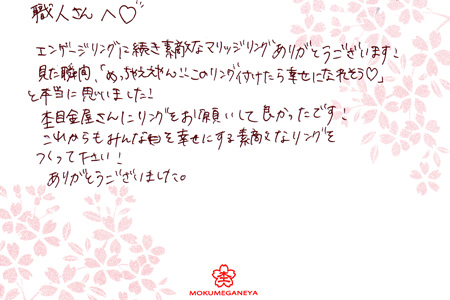 職人さんへ♡
エンゲージリングに続き素敵なマリッジリングありがとうございます!
見た瞬間、「めっちゃええやん!!このリング付けたら幸せになれそう♡」
と本当に思いました!
杢目金屋さんにリングをお願いして良かったです!
これからもみんなを幸せにする素敵なリングを
つくって下さい!
ありがとうございました。
杢
MOKUMEGANEYA